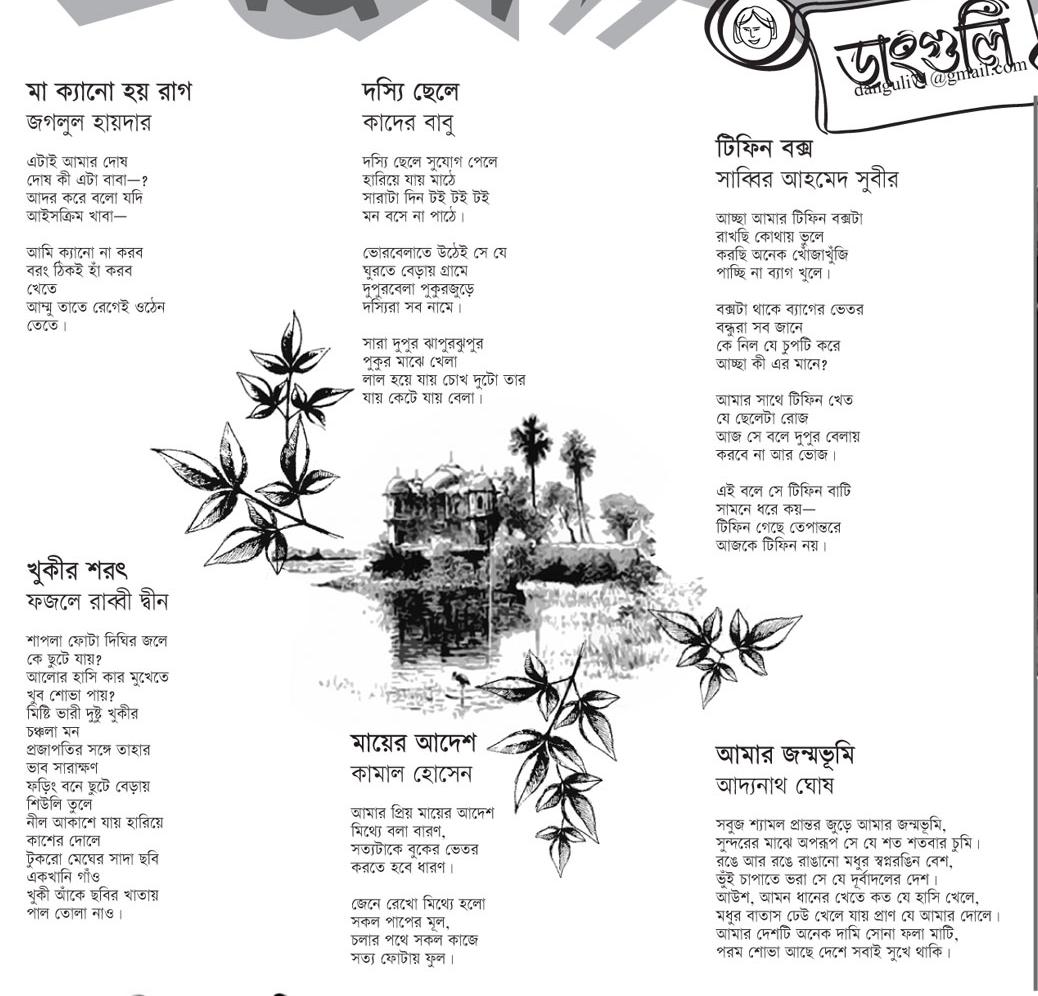 ডাংগুলি
danguli71@gmail.com
মা ক্যানো হয় রাগ
জগলুল হায়দার
এটাই আমার দোষ
দোষ কী এটা বাবা—?
আদর করে বলো যদি
আইসক্রিম খাবা—
আমি ক্যানো না করব
বরং ঠিকই হাঁ করব
খেতে
আম্মু তাতে রেগেই ওঠেন
তেতে।
দস্যি ছেলে
কাদের বাবু
দস্যি ছেলে সুযোগ পেলে
হারিয়ে যায় মাঠে
সারাটা দিন টই টই টই
মন বসে না পাঠে।
ভোরবেলাতে উঠেই সে যে
ঘুরতে বেড়ায় গ্রামে
দুপুরবেলা পুকুরজুড়ে
দস্যিরা সব নামে।
সারা দুপুর ঝাপুরঝুপুর
পুকুর মাঝে খেলা
লাল হয়ে যায় চোখ দুটো তার
যায় কেটে যায় বেলা।
টিফিন বক্স
সাব্বির আহমেদ সুবীর
আচ্ছা আমার টিফিন বক্সটা
রাখছি কোথায় ভুলে
করছি অনেক খোঁজাখুঁজি
পাচ্ছি না ব্যাগ খুলে।
বক্সটা থাকে ব্যাগের ভেতর
বন্ধুরা সব জানে
কে নিল যে চুপটি করে
আচ্ছা কী এর মানে?
আমার সাথে টিফিন খেত
যে ছেলেটা রোজ
আজ সে বলে দুপুর বেলায়
করবে না আর ভোজ।
এই বলে সে টিফিন বাটি
সামনে ধরে কয়—
টিফিন গেছে তেপান্তরে
আজকে টিফিন নয়।
খুকীর শরৎ
ফজলে রাব্বী দ্বীন
শাপলা ফোটা দিঘির জলে
কে ছুটে যায়?
আলোর হাসি কার মুখেতে
খুব শোভা পায়?
মিষ্টি ভারী দুষ্টু খুকীর
চঞ্চলা মন
প্রজাপতির সঙ্গে তাহার
ভাব সারাক্ষণ
ফড়িং বনে ছুটে বেড়ায়
শিউলি তুলে
নীল আকাশে যায় হারিয়ে
কাশের দোলে
টুকরো মেঘের সাদা ছবি
একখানি গাঁও
খুকী আঁকে ছবির খাতায়
পাল তোলা নাও।
মায়ের আদেশ
কামাল হোসেন
আমার প্রিয় মায়ের আদেশ
মিথ্যে বলা বারণ,
সত্যটাকে বুকের ভেতর
করতে হবে ধারণ।
জেনে রেখো মিথ্যে হলো
সকল পাপের মূল,
চলার পথে সকল কাজে
সত্য ফোটায় ফুল।
আমার জন্মভূমি
আদ্যনাথ ঘোষ
সবুজ শ্যামল প্রান্তর জুড়ে আমার জন্মভূমি,
সুন্দরের মাঝে অপরূপ সে যে শত শতবার চুমি।
রঙে আর রঙে রাঙানো মধুর স্বপ্নরঙিন বেশ,
ভুঁই চাপাতে ভরা সে যে দূর্বাদলের দেশ।
আউশ, আমন ধানের খেতে কত যে হাসি খেলে,
মধুর বাতাস ঢেউ খেলে যায় প্রাণ যে আমার দোলে।
আমার দেশটি অনেক দামি সোনা ফলা মাটি,
পরম শোভা আছে দেশে সবাই সুখে থাকি।